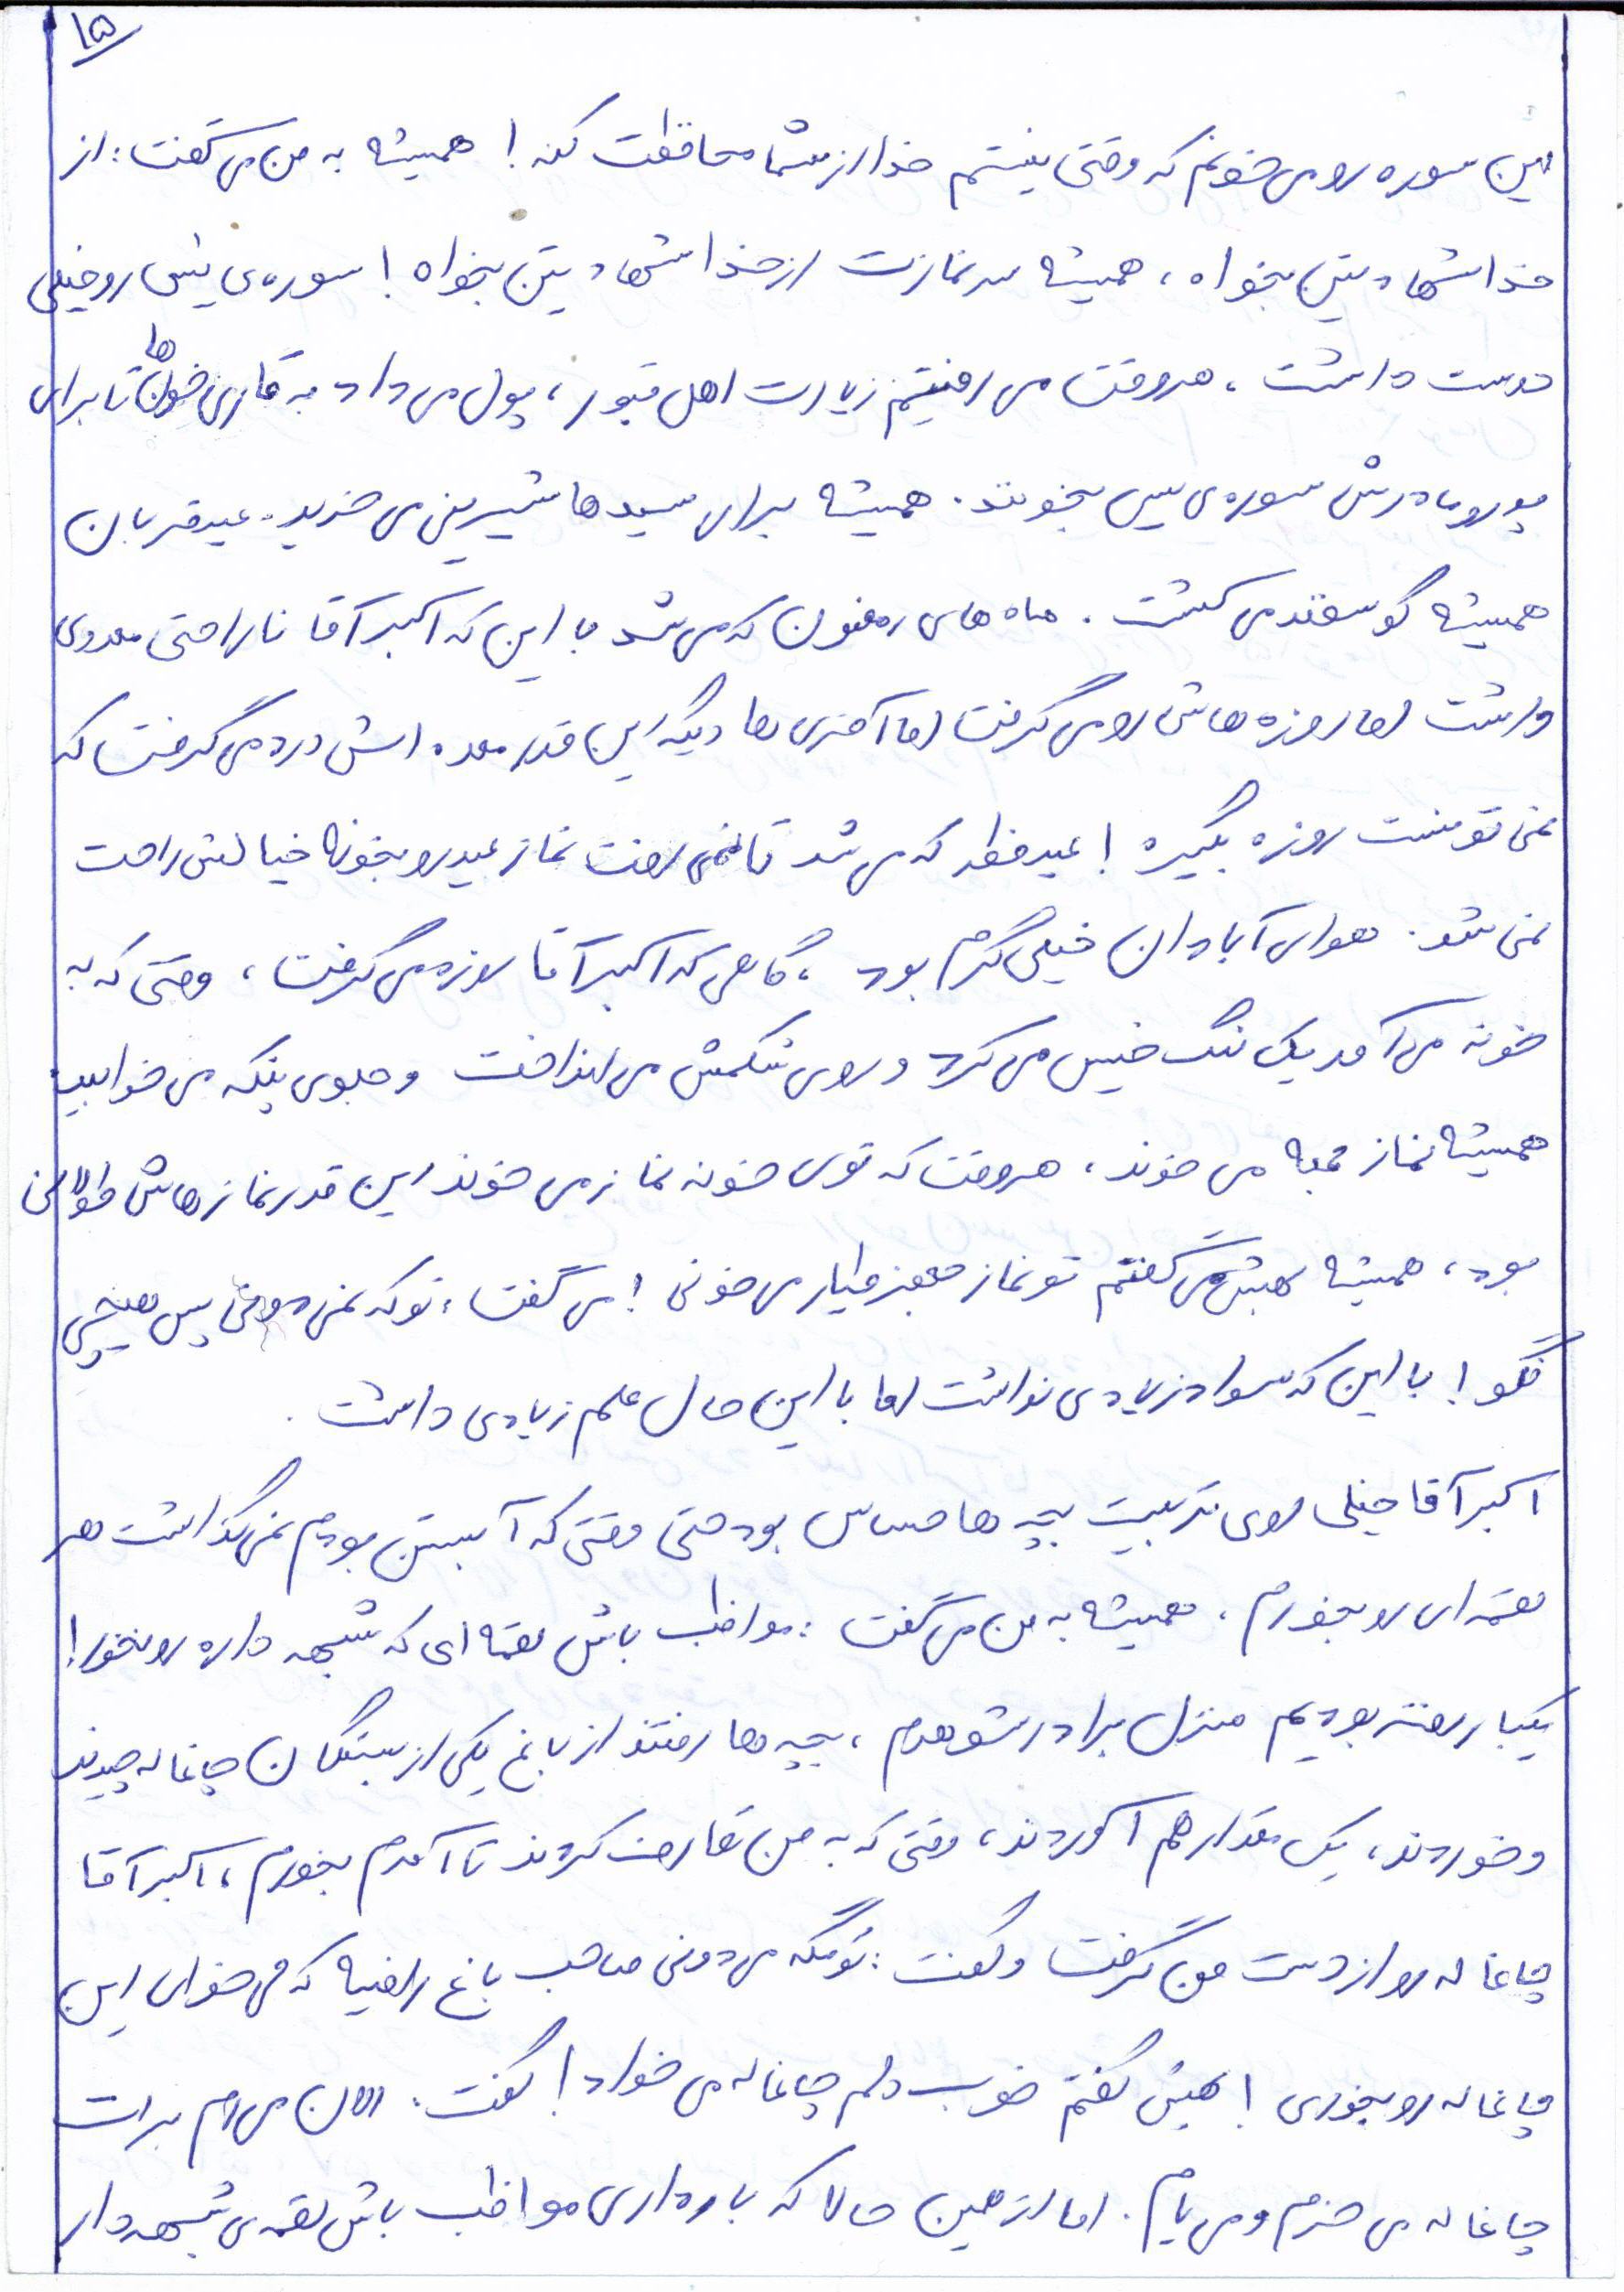 ۱۵
این سوره رو می خونم که وقتی نیستم خدا از شما محافظت کنه! همیشه به من می گفت: از
خدا شهادتین بخواه، همیشه سر نمازت از خدا شهادتین بخواه! سوره ی یس رو خیلی
دوست داشت، هر وقت می رفتیم زیارت اهل قبور، پول می داد به قاری خون ها تا برای
پدر و مادرش سوره ی یس بخونند. همیشه برای سیدها شیرینی می خرید. عید قربان
همیشه گوسفند می کشت. ماه های رمضون که می شد با این که اکبرآقا ناراحتی معده ی
داشت اما روزه هاش رو می گرفت اما آخری ها دیگه این قدر معده اش درد می گرفت که
نمی تونست روزه بگیره! عید فطر که می شد تا نمی رفت نماز عید رو بخونه خیالش راحت
نمی شد. هوای آبادان خیلی گرم بود، گاهی که اکبرآقا روزه می گرفت، وقتی که به
خونه می آمد یک لنگ خیس می کرد و روی شکمش می انداخت و جلوی پنکه می خوابید
همیشه نماز جمعه می خوند، هر وقت که توی خونه نماز می خوند این قدر نمازهاش طولانی
بود، همیشه بهش می گفتم تو نماز جعفر طیار می خونی! می گفت: تو که نمی دونی پس هیچی
نگو! با این که سواد زیادی نداشت اما با این حال علم زیادی داشت.
اکبرآقا خیلی روی تربیت بچه ها حساس بود حتی وقتی که آبستن بودم نمی گذاشت هر
لقمه ای رو بخورم، همیشه به من می گفت: مواظب باش لقمه ای که شبهه داره رو نخور!
یکبار رفته بودیم منزل برادر شوهرم، بچه ها رفتند از باغ یکی از بستگان چاغاله چیدند
و خوردند، یک مقدار هم آوردند، وقتی که به من تعارف کردند تا آمدم بخورم، اکبرآقا
چاغاله رو از دست من گرفت و گفت: تو مگه می دونی صاحب باغ راضیه که می خوای این
چاغاله رو بخوری! بهش گفتم خوب دلم چاغاله می خواد! گفت: الان می رم برات
چاغاله می خرم و می یام. اما از همین حالا که بارداری مواظب باش لقمه ی شبهه دار